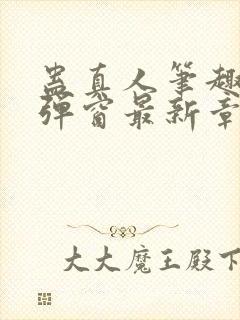 蛊真人筆趣
彈窗最新章
大大魔王殿下